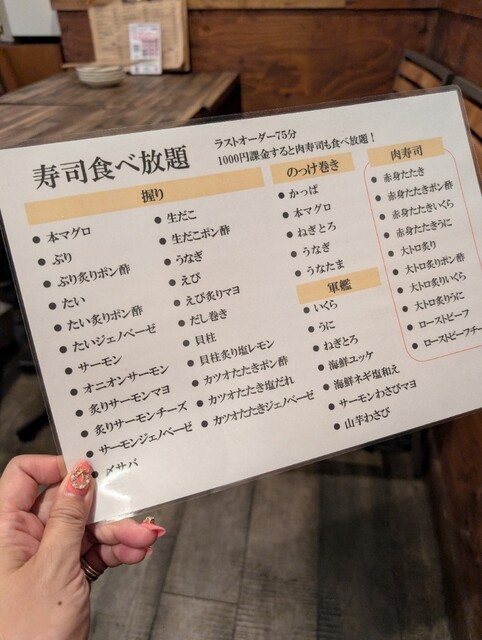 寿司食べ放題
ラストオーダー75分
1000円課金すると肉寿司も食べ放題！
握り
本マグロ
ぶり
ぶり炙りポン酢
たい
たい炙りポン酢
たいジェノベーゼ
サーモン
オニオンサーモン
炙りサーモンマヨ
炙りサーモンチーズ
サーモンジェノベーゼ
〆サバ
生だこ
生だこポン酢
うなぎ
えび
えび炙りマヨ
だし巻き
貝柱
貝柱炙り塩レモン
カツオたたきポン酢
カツオたたき塩だれ
カツオたたきジェノベーゼ
のっけ巻き
かっぱ
本マグロ
ねぎとろ
うなぎ
うなたま
軍艦
いくら
うに
ねぎとろ
海鮮ユッケ
海鮮ネギ塩和え
サーモンわさびマヨ
山芋わさび
肉寿司
赤身たたき
赤身たたきポン酢
赤身たたきいくら
赤身たたきうに
大トロ炙り
大トロ炙りポン酢
大トロ炙りいくら
大トロ炙りうに
ローストビーフ
ローストビーフチー